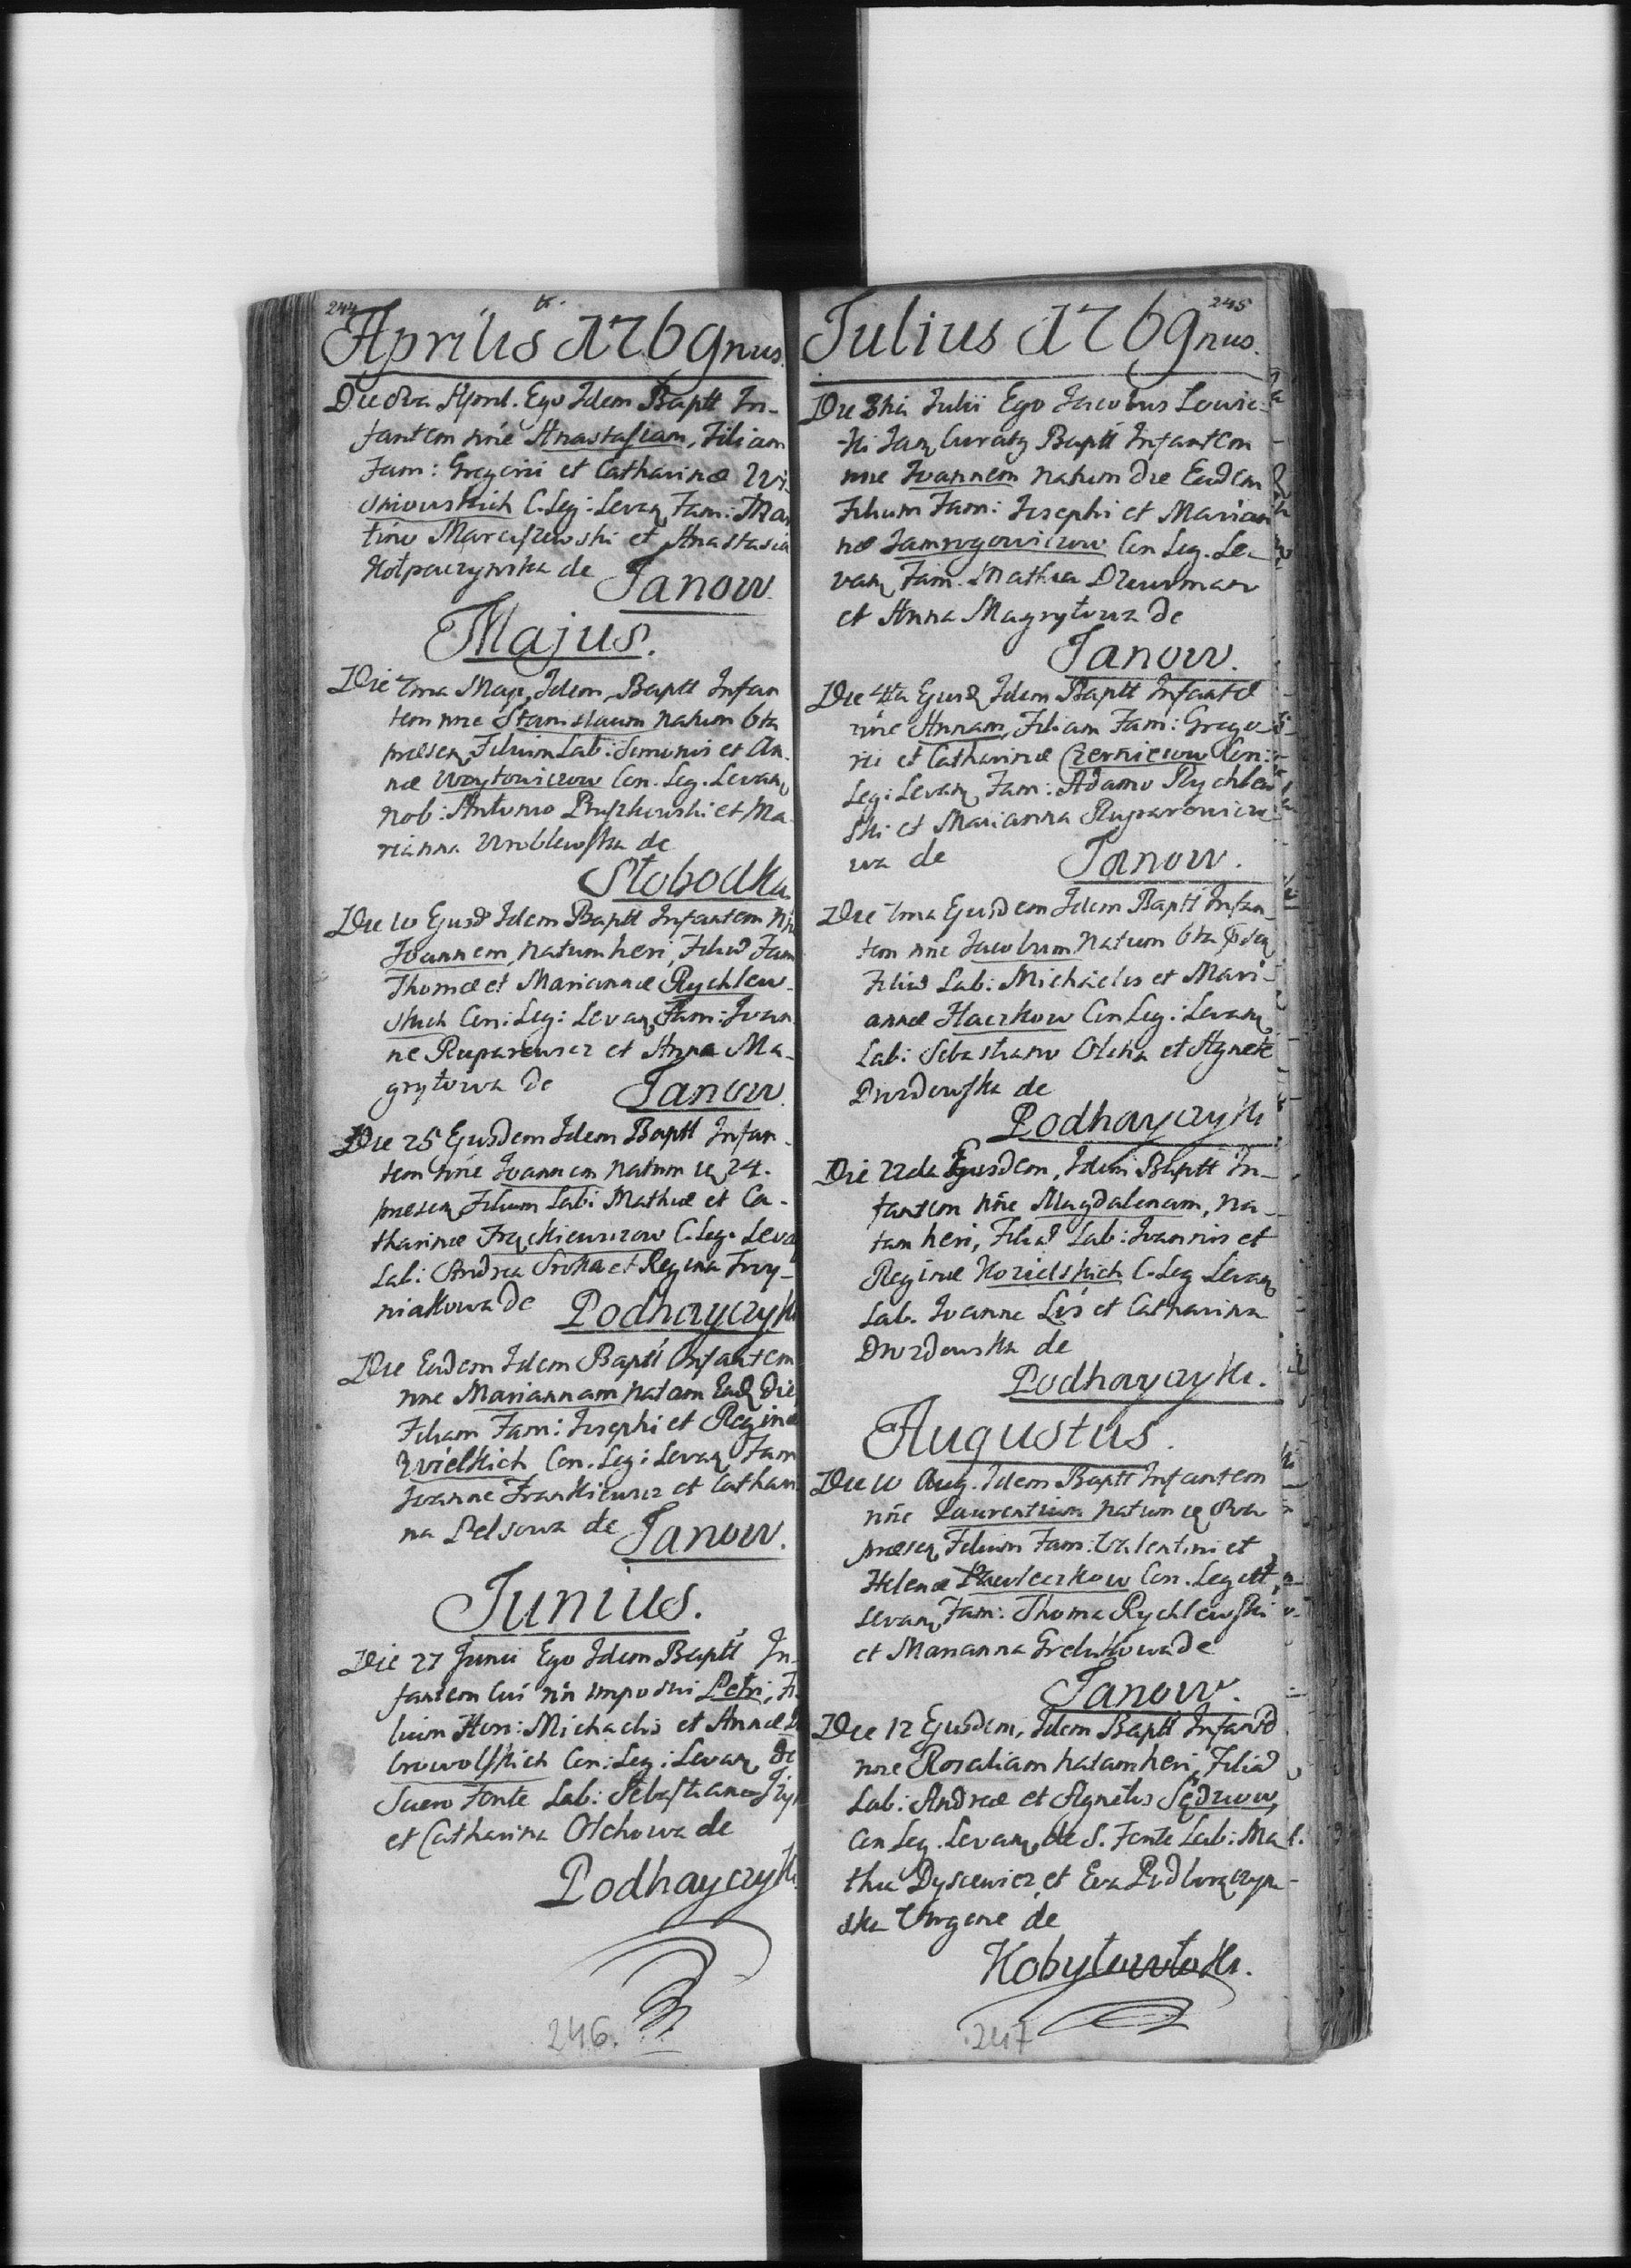 244
Aprilis 1769nus.
Die 8va April. Ego Idem Baptt In-
fantem nne Anastasiam, Filiam
Fam: Gregorii et Catharinæ Wi-
sniowskich C. Leg: Levan Fam: Mar
tino Marciszewski et Anastasia
Kołpaczynska de Janow.
Majus.
Die 7ma Maji, Idem Baptt Infan
tem nne Stanislaum natum 6ta
præsen Filium Lab: Simonis et An-
næ Woytowiczow Con. Leg. Levan
Nob: Antonio Pruszkowski et Ma-
rianna Wroblewska de
Słobodka
Die 10 Ejusd Idem Baptt Infantem nn
Joannem, natum heri, Filiũ Fam
Thomæ et Mariannæ Rychlew-
skich Con: Leg: Levan Fam: Joan
ne Ruparewicz et Anna Ma-
grytowa de Janow.
Die 25 Ejusdem Idem Baptt Infan-
tem nne Joannem natum 24.
præsen Filium Lab: Mathiæ et Ca-
tharinæ Frąckiewiczow C. Leg. Leva
Lab: Andrea Sroka et Regina Troy-
niakowa de Podhayczyki
Die Eadem Idem Baptt Infantem
nne Mariannam natam Ead die
Filiam Fam: Josephi et Reginæ
Zvielkich Con. Leg: Levan Fam
Joanne Frankiewicz et Cathari
na Pelsowa de Janow.
Junius.
Die 27 Junii Ego Idem Baptt In-
fantem Cui nn imposui Petri, Fi
lium Hon: Michaelis et Annæ Do
browolskich Con: Leg: Levan de
Sacro Fonte Lab: Sebastiano
et Catharina Olchowa de
Podhayczyki
246.
245
Julius 1769nus.
Die 3tia Julii Ego Jacobus Lowic-
ki Jan Curatg Baptt Infantem
nne Joannem natum die Eadem
Filium Fam: Josephi et Marian
næ Jamrogowiczow Con Leg. Le-
van Fam. Mathia Drewman
et Anna Magrytowa de
Janow.
Die 4ta Ejusd Idem Baptt Infantẽ
nne Annam, Filiam Fam: Grego-
rii et Catharinæ Czerniciow Con:
Leg: Levan Fam: Adamo Rychlew
ski et Marianna Ruparowiczo
wa de Janow.
Die 7ma Ejusdem Idem Baptt Infan-
tem nne Jacobum natum 6ta
Filiũ Lab: Michaelis et Mari-
annæ Haczkow Con Leg: Levan
Lab: Sebastiano Olcha et Agnete
Drozdowska de
Podhayczyki
Die 22da Ejusdem, Idem Baptt In-
fantem nne Magdalenam, na-
tam heri, Filiã Lab: Joannis et
Reginæ Kozielskich C. Leg Levan
Lab. Joanne Lis et Catharina
Drozdowska de
Podhayczyki.
Augustus.
Die 10 Aug. Idem Baptt Infantem
nne Laurentium natum
præsen Filium Fam: Valentini et
Helenæ Pawleczkow Con. Leg
Levan Fam: Thoma Rychlewski
et Marianna Grelukowa de
Janow.
Die 12 Ejusdem, Idem Baptt Infantẽ
nne Rosaliam natam heri, Filiã
Lab: Andreæ et Agnetis Sędziow,
Con Leg. Levan de S. Fonte Lab: Ma
thia Dyscewicz et Eva Podhoraczyn-
ska Virgine de
Kobyłowłoki.
247